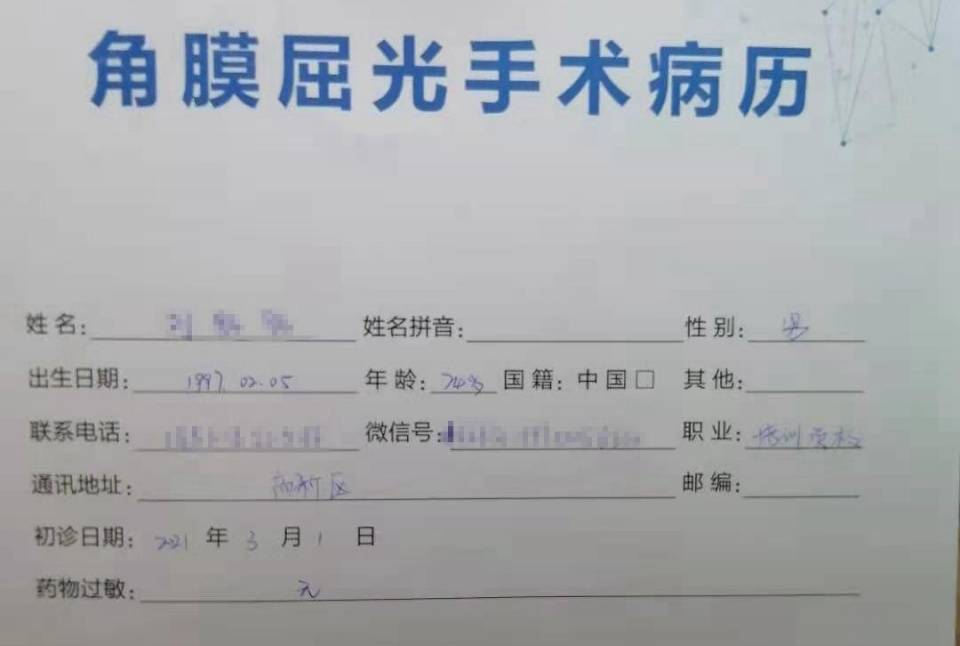 角膜屈光手术病历
姓名: 刘 姓名拼音: 性别: 男
出生日期: 1997.02.05 年龄: 24岁 国籍: 中国□ 其他:
联系电话: 微信号: 职业: 培训
通讯地址: 高新区 邮编:
初诊日期: 2021 年 3 月 1 日
药物过敏: 无